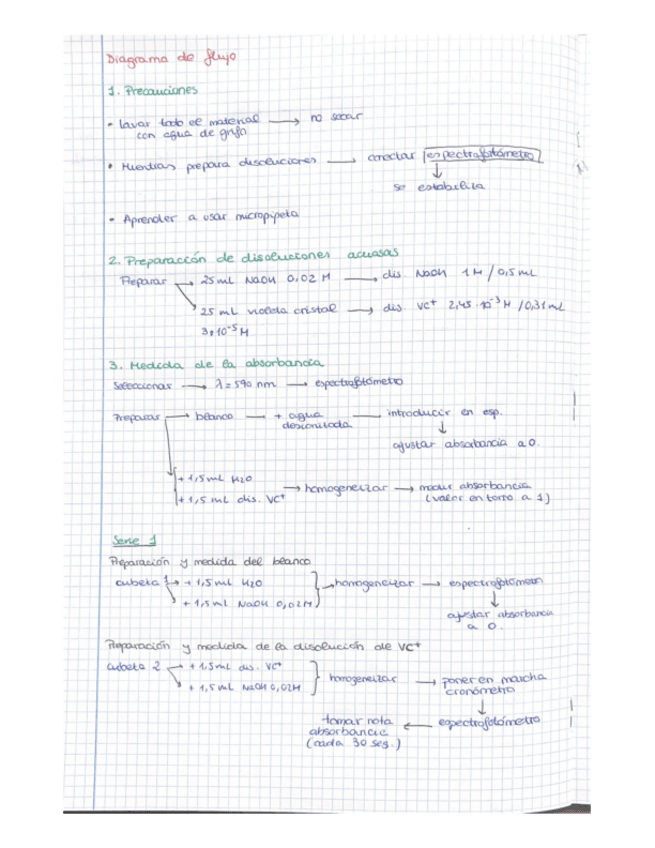 Diagrama de flujo
1. Precauciones
• lavar todo el material → no secar
con agua de grifo
• Mientras prepara disoluciones → conectar espectrofotómetro
↓
se estabiliza
• Aprender a usar micropipeta
2. Preparación de disoluciones acuosas
Preparar → 25 mL NaOH 0,02 M → dis. NaOH 1M / 0,5 mL
25 mL violeta cristal → dis. VC⁺ 2,45·10⁻³ M / 0,31 mL
3·10⁻⁵ M
3. Medida de la absorbancia
Seleccionar → λ = 590 nm → espectrofotómetro
Preparar → blanco → + agua → introducir en esp.
desionizada
↓
ajustar absorbancia a 0.
+ 1,5 mL H₂O
+ 1,5 mL dis. VC⁺ → homogeneizar → medir absorbancia
(valor en torno a 1)
Serie 1
Preparación y medida del blanco
cubeta 1 → + 1,5 mL H₂O } → homogeneizar → espectrofotómetro
+ 1,5 mL NaOH 0,02M
↓
ajustar absorbancia
a 0.
Preparación y medida de la disolución de VC⁺
cubeta 2 → + 1,5 mL dis. VC⁺ } homogeneizar → poner en marcha
+ 1,5 mL NaOH 0,02M
cronómetro
↓
tomar nota ← espectrofotómetro
absorbancia
(cada 30 seg.)